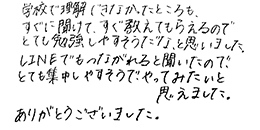 学校で理解できなかったところも、
すぐに聞けて、すぐ教えてもらえるので
とても勉強しやすそうだな、と思いました。
LINEでもつながれると聞いたので
とても集中しやすそうでやってみたいと
思えました。
ありがとうございました。